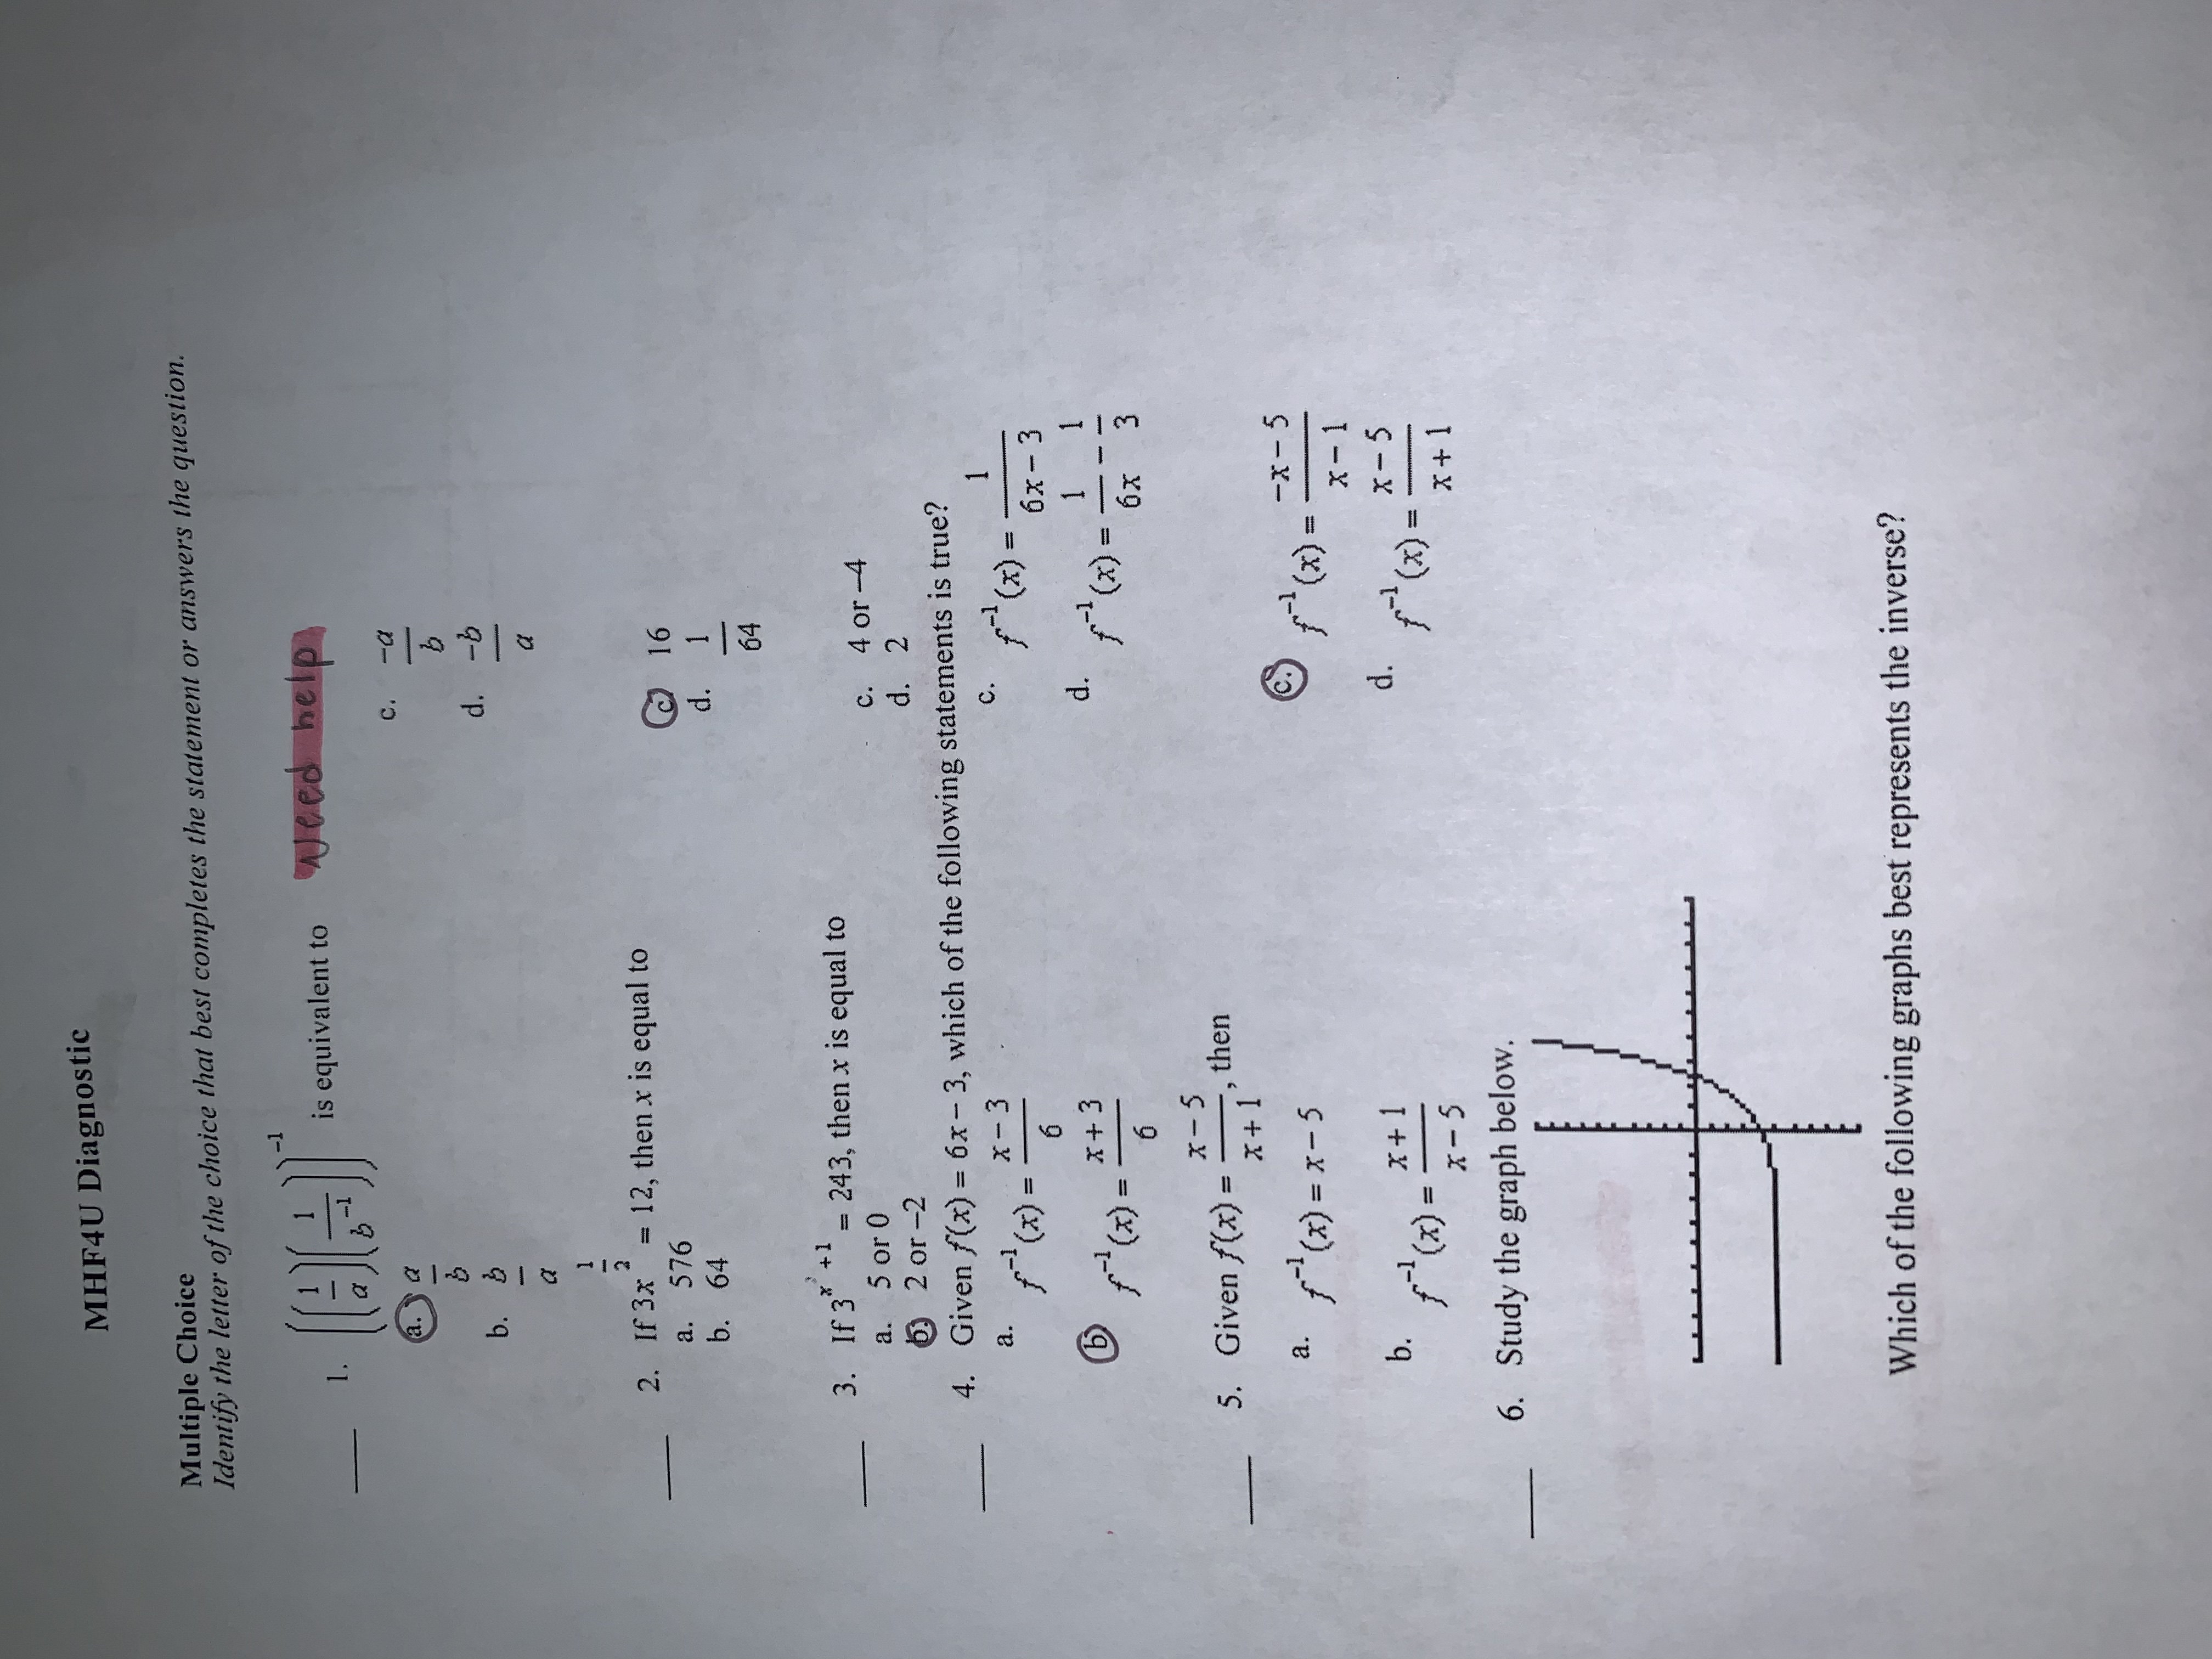 MHF4U Diagnostic
Multiple Choice
Identify the letter of the choice that best completes the statement or answers the question.
Need help
1. ((1/a)(1/b⁻¹))⁻¹ is equivalent to
a. a/b
c. -a/b
b. b/a
d. -b/a
2. If 3x^(1/2) = 12, then x is equal to
a. 576
c. 16
b. 64
d. 1/64
3. If 3^(x²+1) = 243, then x is equal to
a. 5 or 0
c. 4 or -4
b. 2 or -2
d. 2
4. Given f(x) = 6x - 3, which of the following statements is true?
a. f⁻¹(x) = (x - 3)/6
c. f⁻¹(x) = 1/(6x - 3)
b. f⁻¹(x) = (x + 3)/6
d. f⁻¹(x) = 1/6x - 1/3
5. Given f(x) = (x - 5)/(x + 1), then
a. f⁻¹(x) = x - 5
c. f⁻¹(x) = (-x - 5)/(x - 1)
b. f⁻¹(x) = (x + 1)/(x - 5)
d. f⁻¹(x) = (x - 5)/(x + 1)
6. Study the graph below.
Which of the following graphs best represents the inverse?